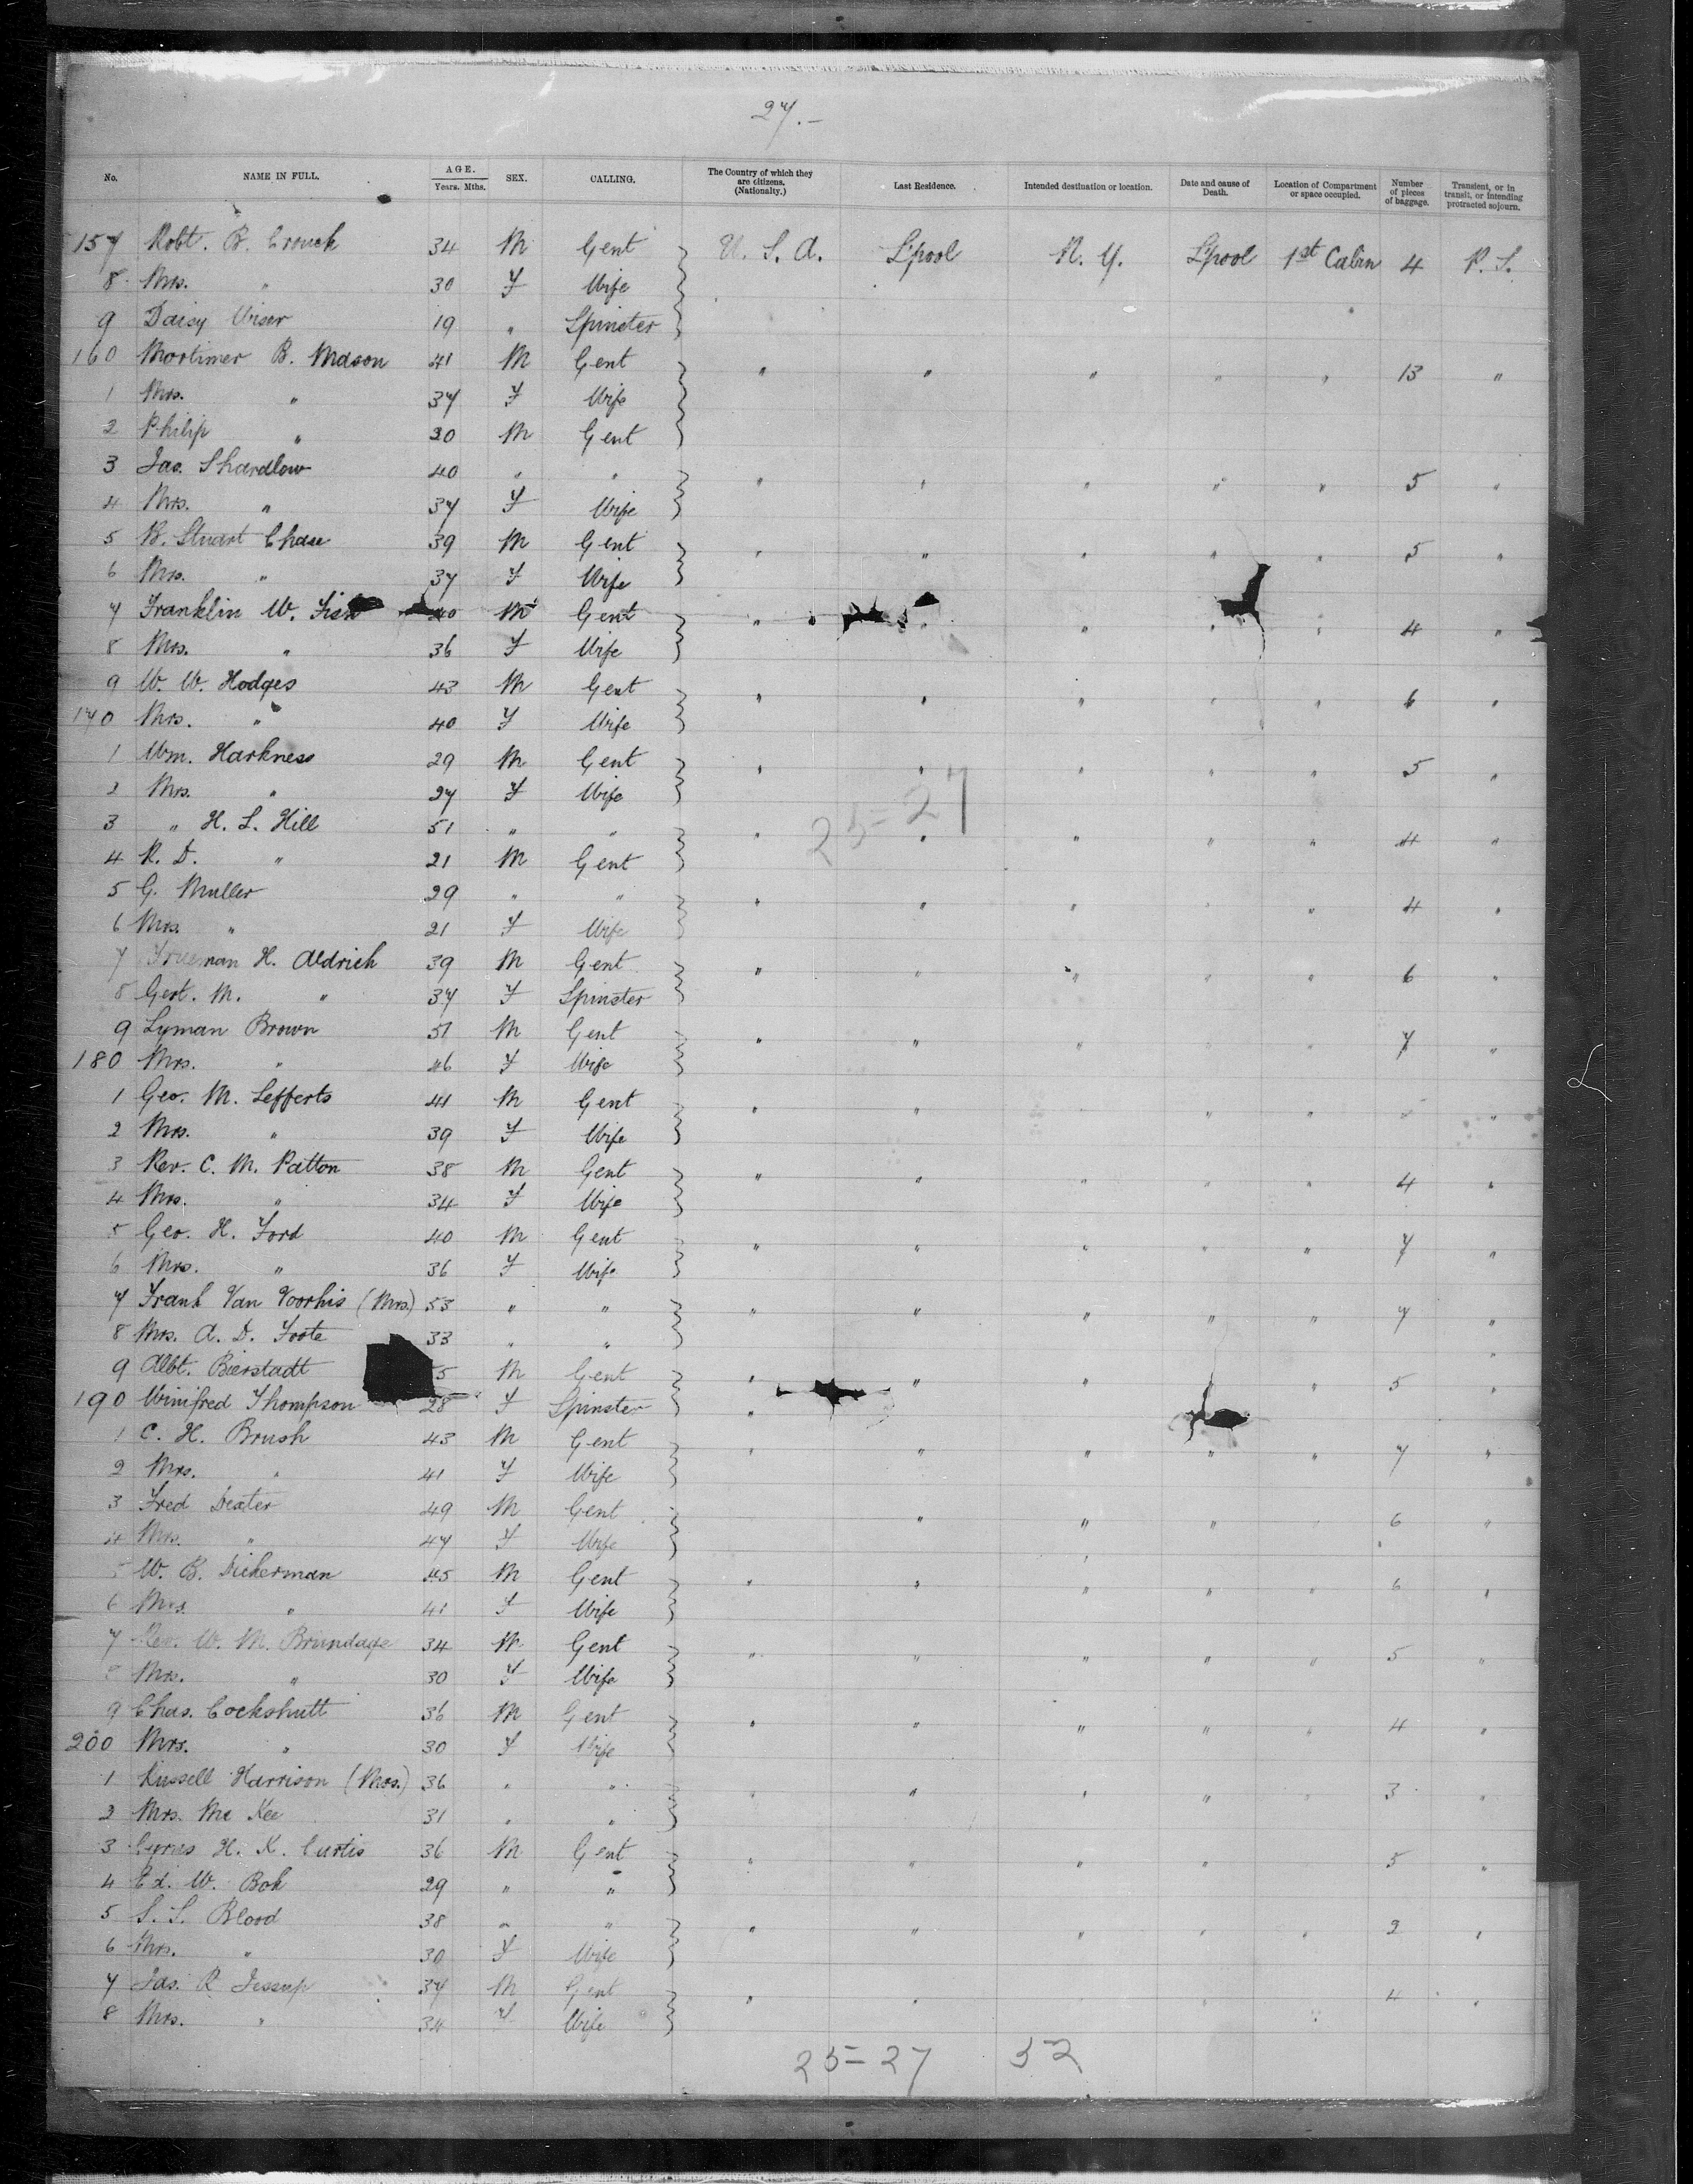 27.-
No. NAME IN FULL. AGE. Years. Mths. SEX. CALLING. The Country of which they are citizens. (Nationalty.) Last Residence. Intended destination or location. Date and cause of Death. Location of Compartment or space occupied. Number of pieces of baggage. Transient, or in transit, or intending protracted sojourn.
157 Robt. B. Crouch 34 M Gent U. S. A. L'pool N. Y. L'pool 1st Cabin 4 P. S.
8 Mrs. " 30 F Wife
9 Daisy 19 " Spinster
160 Mortimer B. Mason 41 M Gent " " " " " 13 "
1 Mrs. " 37 F Wife
2 Philip " 30 M Gent
3 Jas. Shardlow 40 " " " " " " " 5 "
4 Mrs. " 37 F Wife
5 B. Stuart Chase 39 M Gent " " " " " 5 "
6 Mrs. " 37 F Wife
7 Franklin W. Fish 40 M Gent " " " " " 4 "
8 Mrs. " 36 F Wife
9 W. W. Hodges 43 M Gent " " " " " 6 "
170 Mrs. " 40 F Wife
1 Wm. Harkness 29 M Gent " " " " " 5 "
2 Mrs. " 27 F Wife
25-27
3 " H. L. Hill 51 " " " " " " " 4 "
4 R. D. " 21 M Gent
5 G. Muller 29 " " " " " " " 4 "
6 Mrs. " 21 F Wife
7 Trueman H. Aldrich 39 M Gent " " " " " 6 "
8 Gert. M. " 37 F Spinster
9 Lyman Brown 51 M Gent " " " " " 7 "
180 Mrs. " 46 F Wife
1 Geo. M. Lefferts 41 M Gent " " " " "
2 Mrs. " 39 F Wife
3 Rev. C. M. Patton 38 M Gent " " " " " 4 "
4 Mrs. " 34 F Wife
5 Geo. H. Ford 40 M Gent " " " " " 7 "
6 Mrs. " 36 F Wife
7 Frank Van Voorhis (Mrs.) 53 " " " " " " " 7 "
8 Mrs. A. D. Foote 33 " " "
9 Albt. Bierstadt 5 M Gent " " " " 5 "
190 Winifred Thompson 28 F Spinster "
1 C. H. Brush 43 M Gent " " " " " 7 "
2 Mrs. " 41 F Wife
3 Fred Dexter 49 M Gent " " " " 6 "
4 Mrs. " 47 F Wife
5 W. B. Dickerman 45 M Gent " " " " " 6 "
6 Mrs. " 41 F Wife
7 Rev. W. M. Brundage 34 M Gent " " " " " 5 "
8 Mrs. " 30 F Wife
9 Chas. Cockshutt 36 M Gent " " " " " 4 "
200 Mrs. " 30 F Wife
1 Russell Harrison (Mrs.) 36 " " " " " " " 3 "
2 Mrs. Mc Kee 31 " "
3 Cyrus H. K. Curtis 36 M Gent " " " " 5 "
4 Ed. W. Bok 29 " "
5 S. S. Blood 38 " " " " " " " 2 "
6 Mrs. " 30 F Wife
7 Jas. R. Jessup 37 M Gent " " " 4 "
8 Mrs. " 34 F Wife
25-27 52